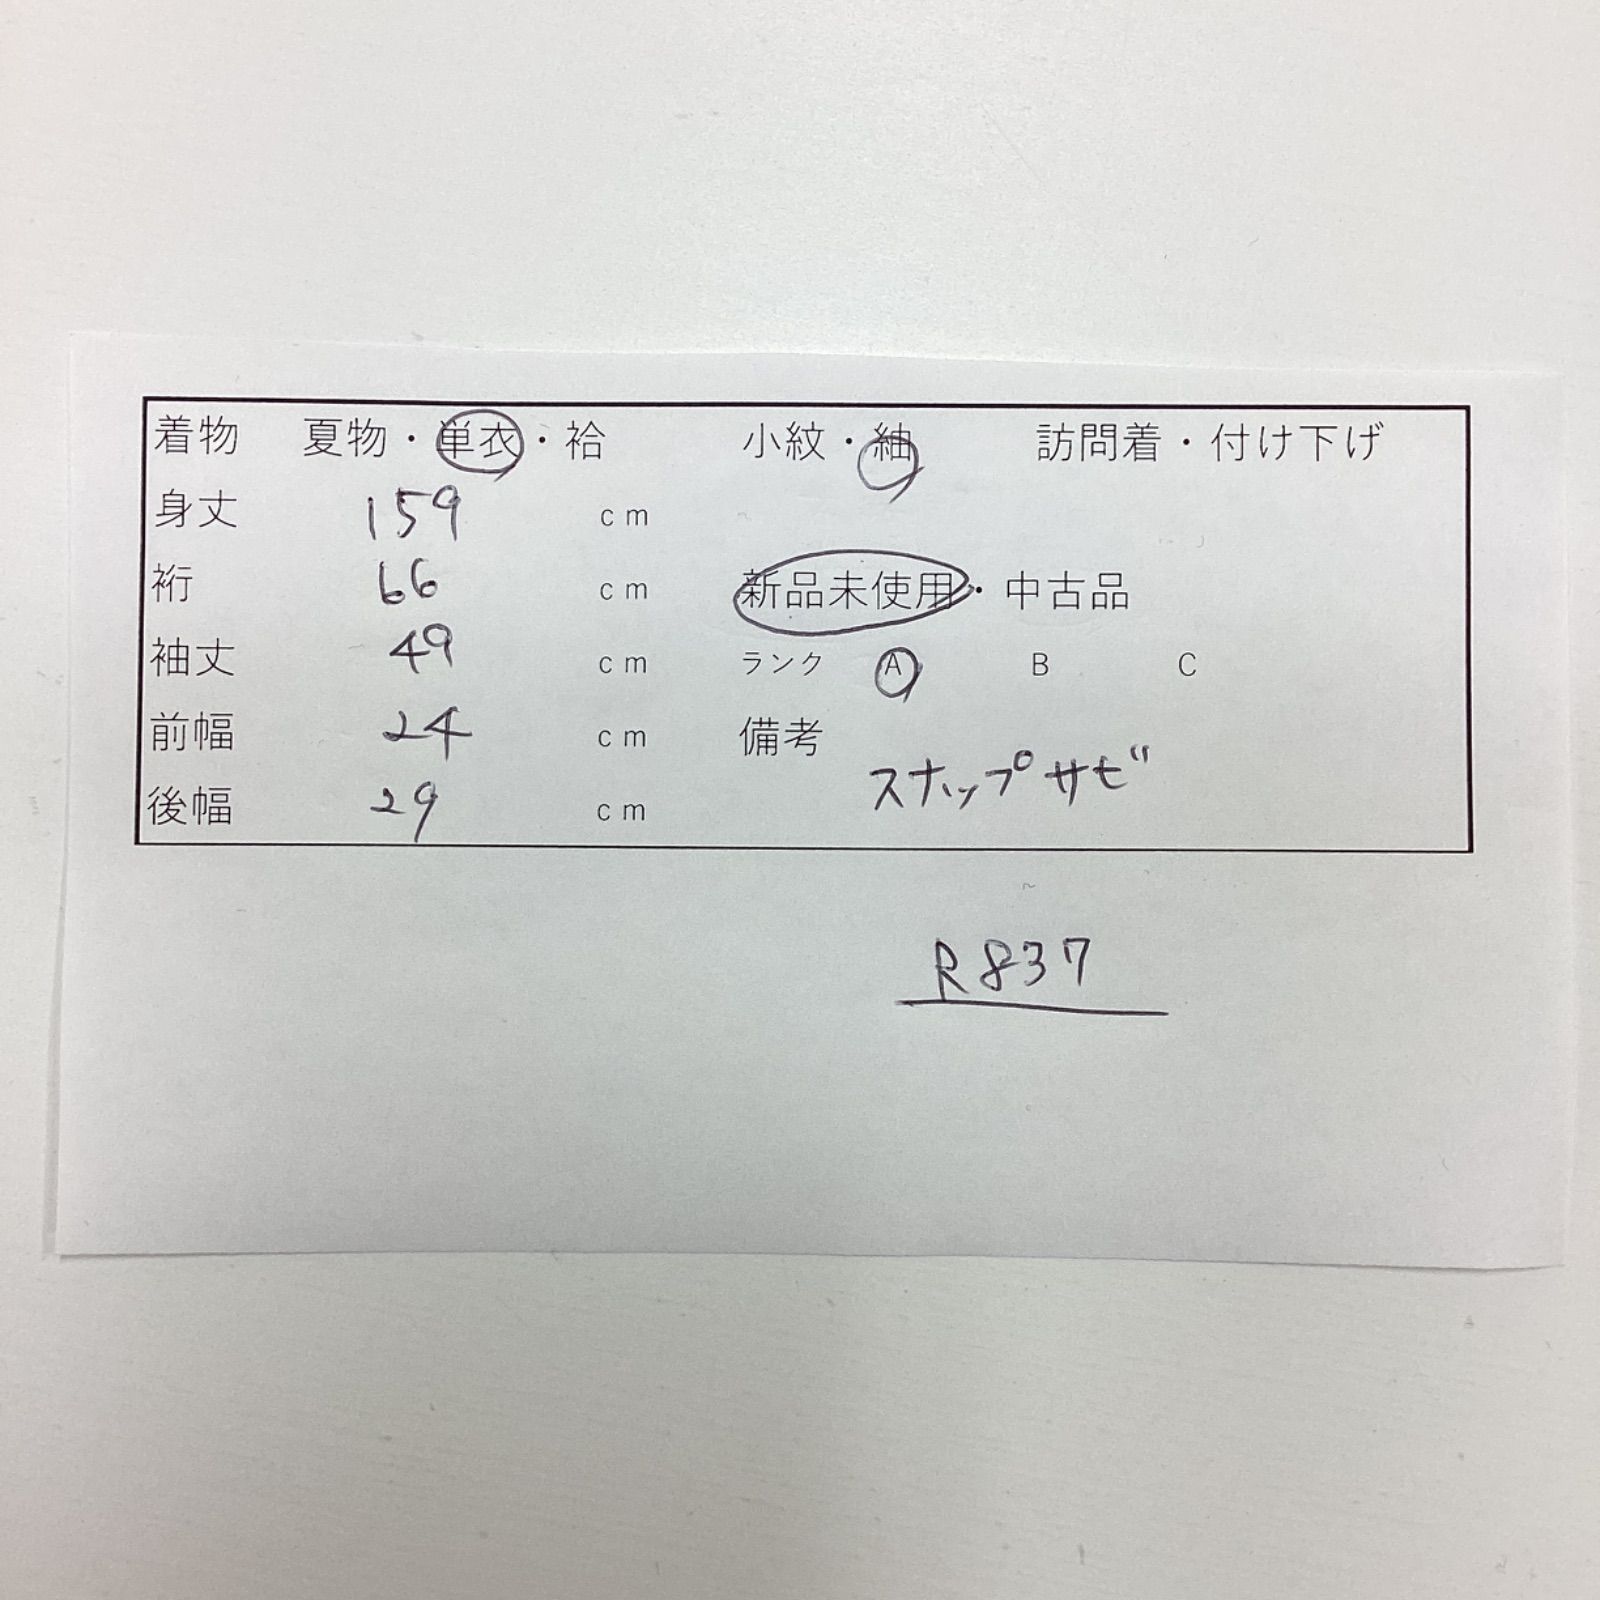 着物 夏物・単衣・袷 小紋・紬 訪問着・付け下げ
身丈 159 cm
裄 66 cm 新品未使用・中古品
袖丈 49 cm ランク A B C
前幅 24 cm 備考
スナップサビ
後幅 29 cm
R837